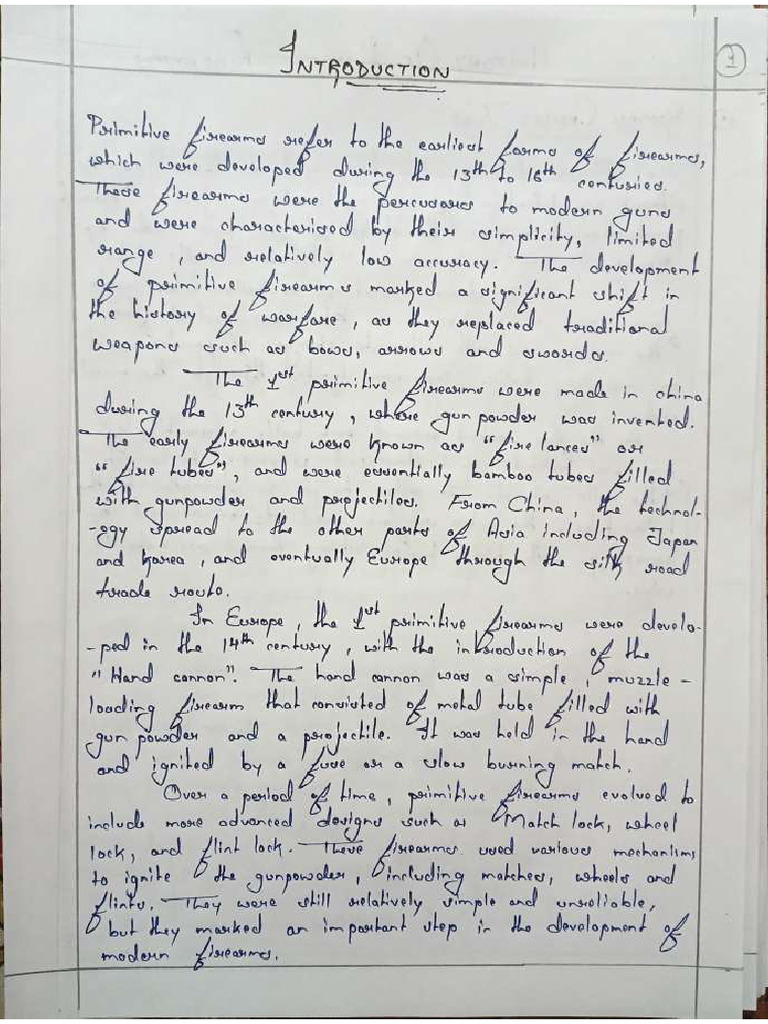 INTRODUCTION
1
Primitive firearms refer to the earliest forms of firearms,
which were developed during the 13th to 16th centuries.
These firearms were the percusors to modern guns
and were characterised by their simplicity, limited
range, and relatively low accuracy. The development
of primitive firearms marked a significant shift in
the history of warfare, as they replaced traditional
weapons such as bows, arrows and swords.
The 1st primitive firearms were made in china
during the 13th century, where gun powder was invented.
The early firearms were known as "fire lances" or
"fire tubes", and were essentially bamboo tubes filled
with gunpowder and projectiles. From China, the technol-
-ogy spread to the other parts of Asia including Japan
and Korea, and eventually Europe through the silk road
trade route.
In Europe, the 1st primitive firearms were develo-
-ped in the 14th century, with the introduction of the
"Hand cannon". The hand cannon was a simple, muzzle-
loading firearm that consisted of metal tube filled with
gun powder and a projectile. It was held in the hand
and ignited by a fuse or a slow burning match.
Over a period of time, primitive firearms evolved to
include more advanced designs such as Match lock, wheel
lock, and flint lock. These firearms used various mechanisms
to ignite the gunpowder, including matches, wheels and
flints. They were still relatively simple and unreliable,
but they marked an important step in the development of
modern firearms.